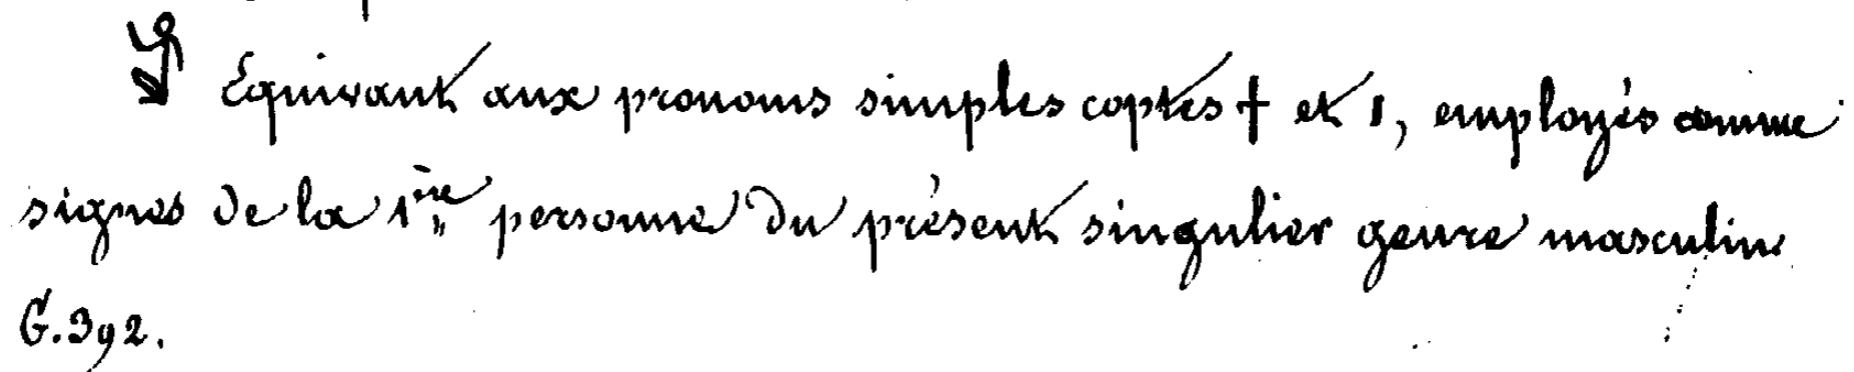 𓀁 Equivant aux pronoms simples coptes ϯ et ⲓ, employés comme
signes de la 1ère personne du présent singulier genre masculin
G. 392.